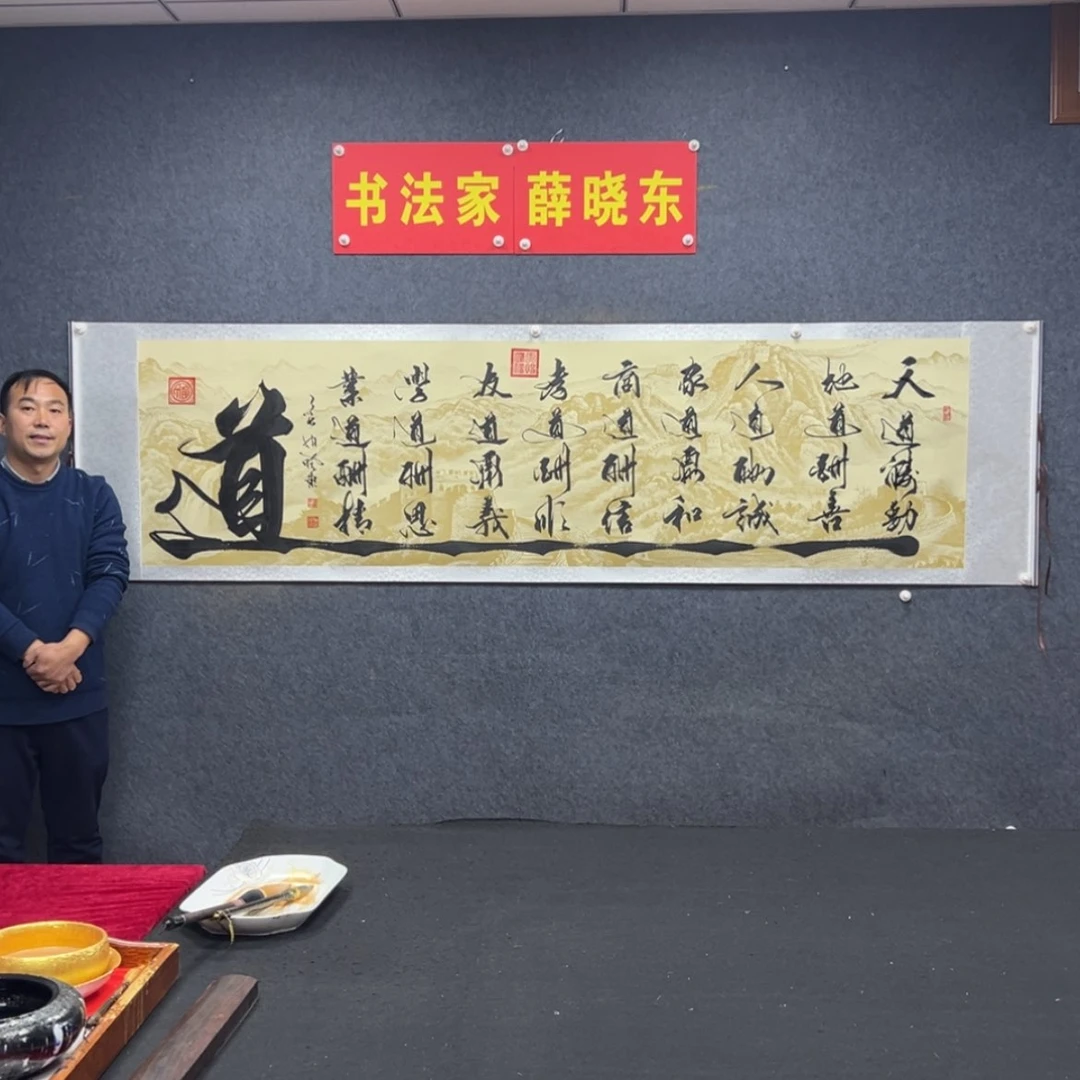 书法家 薛晓东
天道酬勤
地道酬善
人道酬誠
家道酬和
商道酬信
孝道酬順
友道酬義
學道酬恩
業道酬精
道